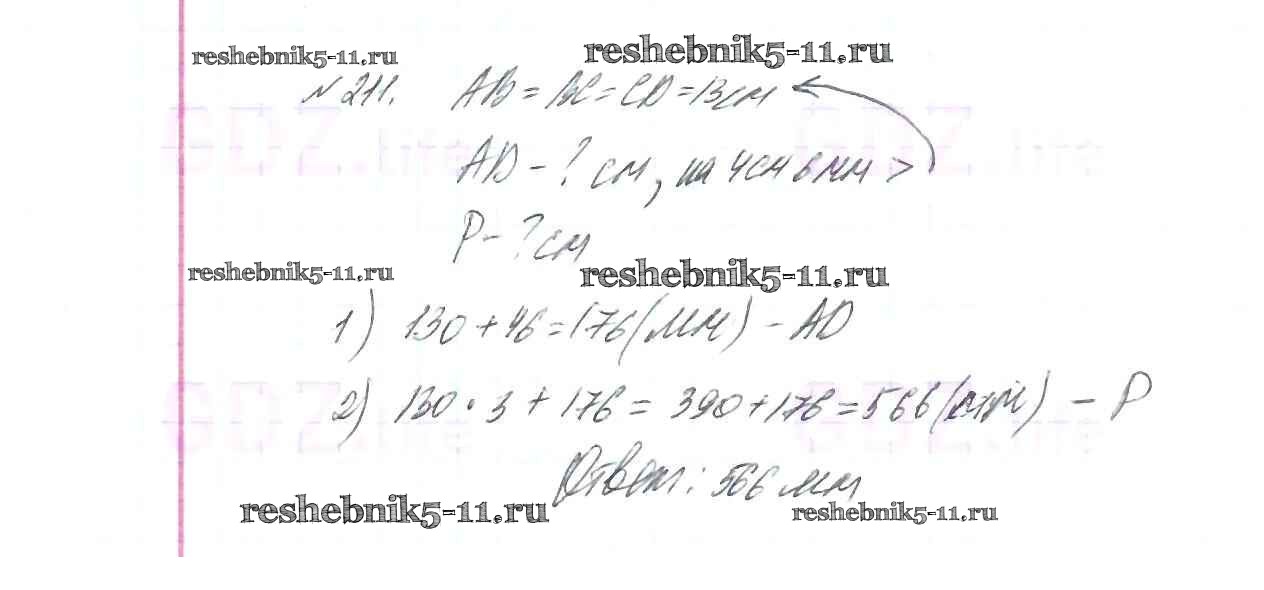 reshebnik5-11.ru reshebnik5-11.ru
№ 211. AB = BC = CD = 13 см
GDZ.life GDZ.life
AD - ? см, на 4 см 6 мм >
P - ? см
reshebnik5-11.ru reshebnik5-11.ru
1) 130 + 46 = 176 (мм) - AD
2) 130 · 3 + 176 = 390 + 176 = 566 (мм) - P
GDZ.life GDZ.life
Ответ: 566 мм
reshebnik5-11.ru reshebnik5-11.ru